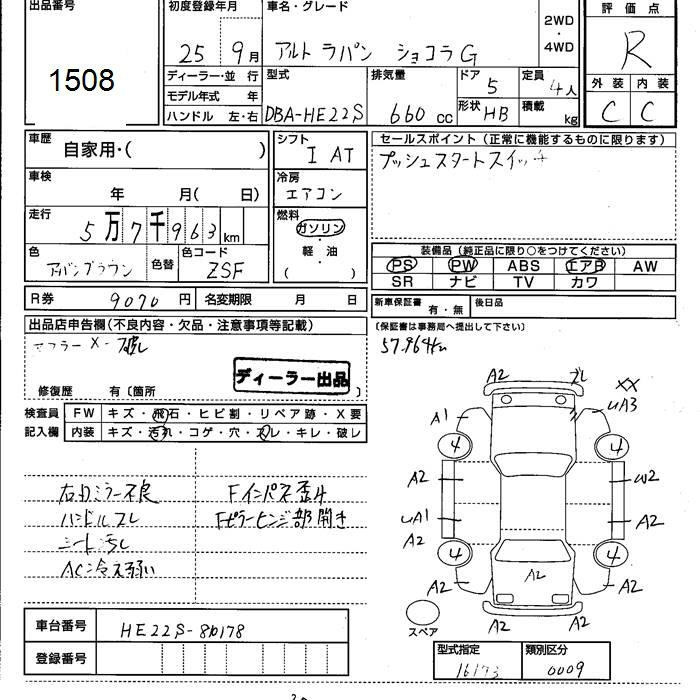 出品番号
1508
初度登録年月
25 9月
車名・グレード
アルト ラパン ショコラG
2WD
・
4WD
評価点
R
外装 内装
C C
ディーラー・並 行
モデル年式 年
ハンドル 左・右
型式
DBA-HE22S
排気量
660 cc
ドア
5
形状 HB
定員
4人
積載
kg
車歴
自家用・( )
車検
年 月( 日)
走行
5万7千963km
色
アーバンブラウン
色替
色コード
ZSF
シフト
I AT
冷房
エアコン
燃料
ガソリン
・
軽・油
( )
セールスポイント(正常に機能するものに限ります)
プッシュスタートスイッチ
装備品(純正品に限り○をつけてください)
PS PW ABS エアB AW
SR ナビ TV カワ
R券 9070 円 名変期限 月 日
新車保証書 有・無
後日品
出品店申告欄(不良内容・欠品・注意事項等記載)
(保証書は事務局へ提出して下さい)
57.964km
ディーラー出品
修復歴 有〔箇所 〕
検査員
記入欄
FW キズ・飛石・ヒビ割・リペア跡・X要
内装 キズ・汚れ・コゲ・穴・スレ・キレ・破レ
右ドミラー不良
ハンドルスレ
シート汚し
AC冷え弱い
Fインパネ歪み
Fピラーヒンジ部開き
A2
XX
A1
UA3
4
4
A2
W2
UA1
A2
A2
4
4
A2
A2
A2
A2
A2
スペア
車台番号 HE22S-810178
登録番号
型式指定 16173
類別区分 0009